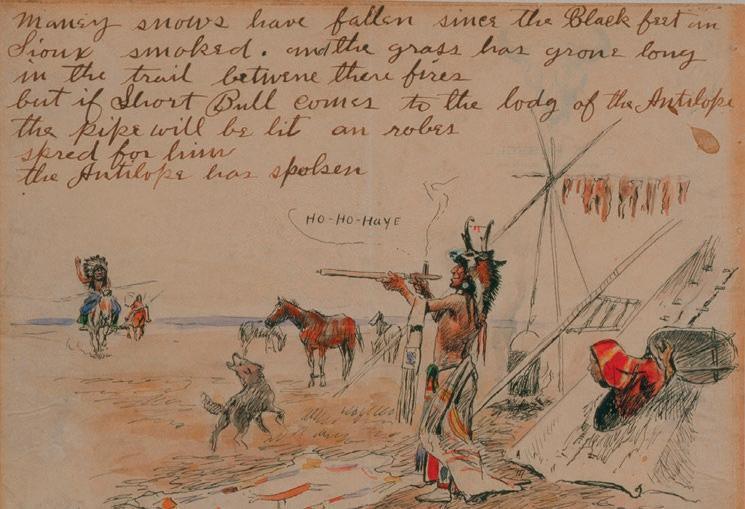 Maney snows have fallen since the Black feet an
Sioux smoked. and the grass has grone long
in the trail betwene there fires
but if Short Bull comes to the lodg of the Antilope
the pipe will be lit an robes
spred for him
the Antilope has spoken
HO-HO-HAYE